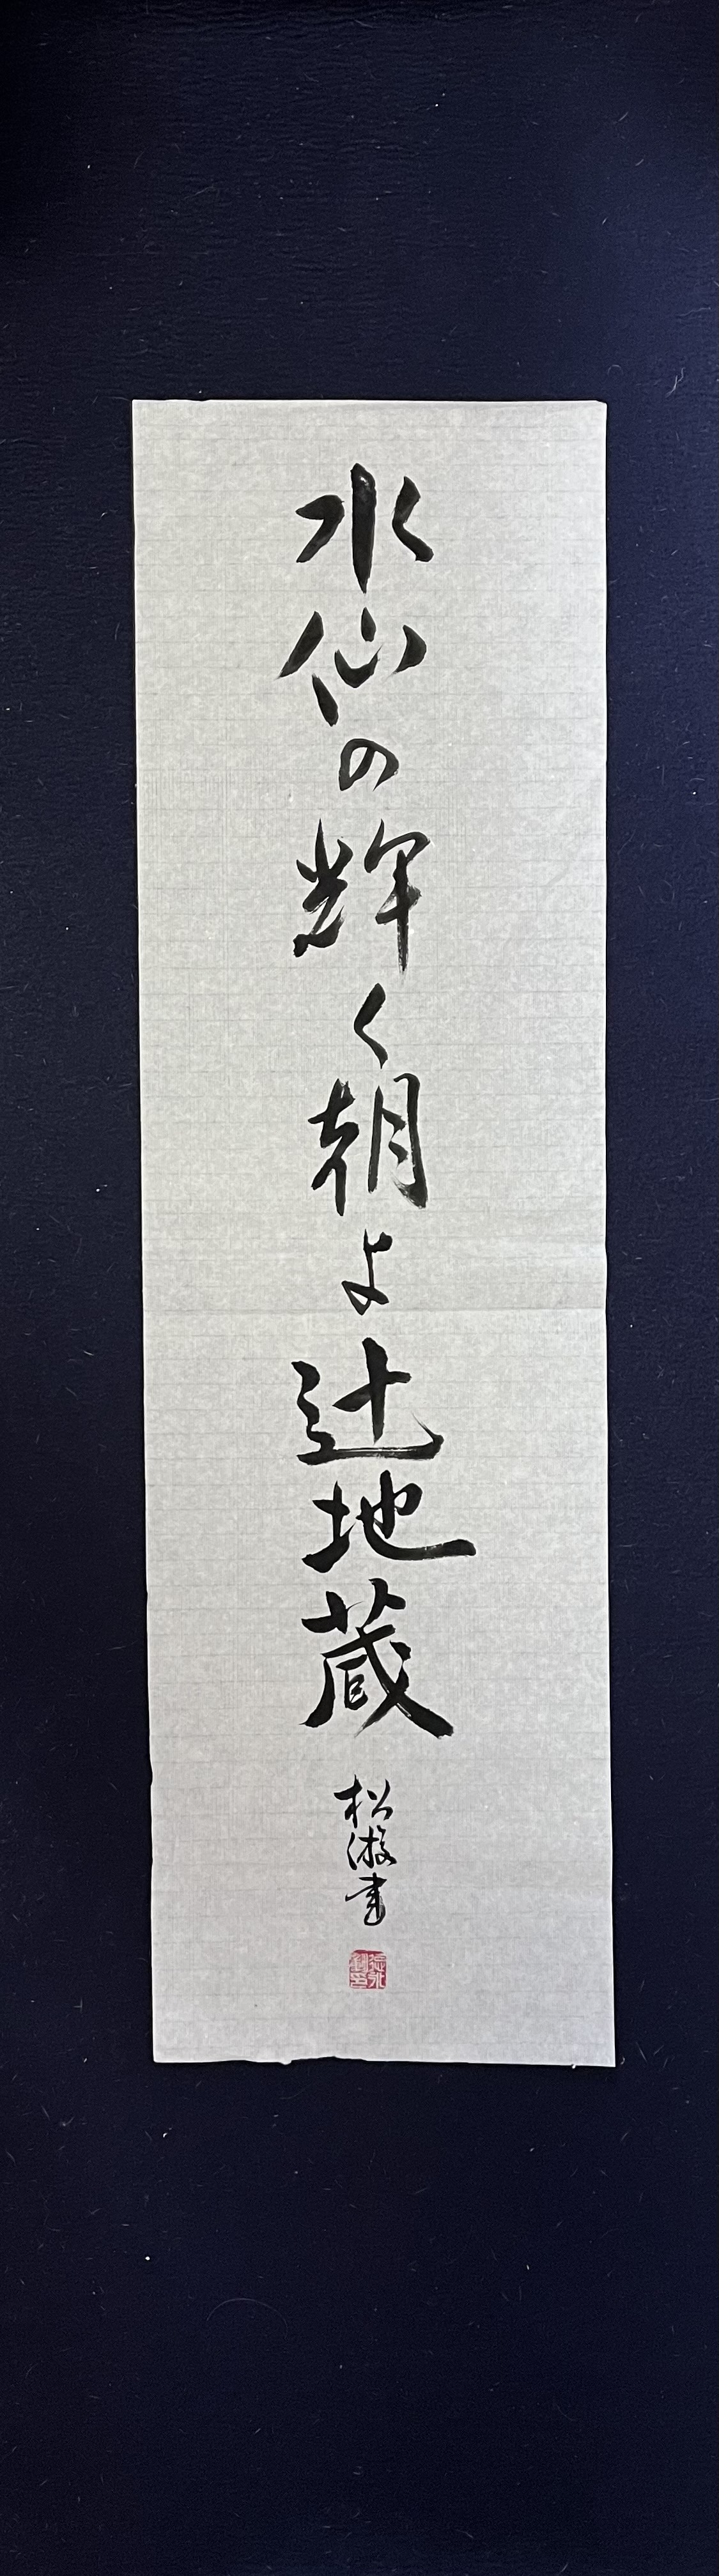 水仙の輝く朝よ辻地蔵
松漱書